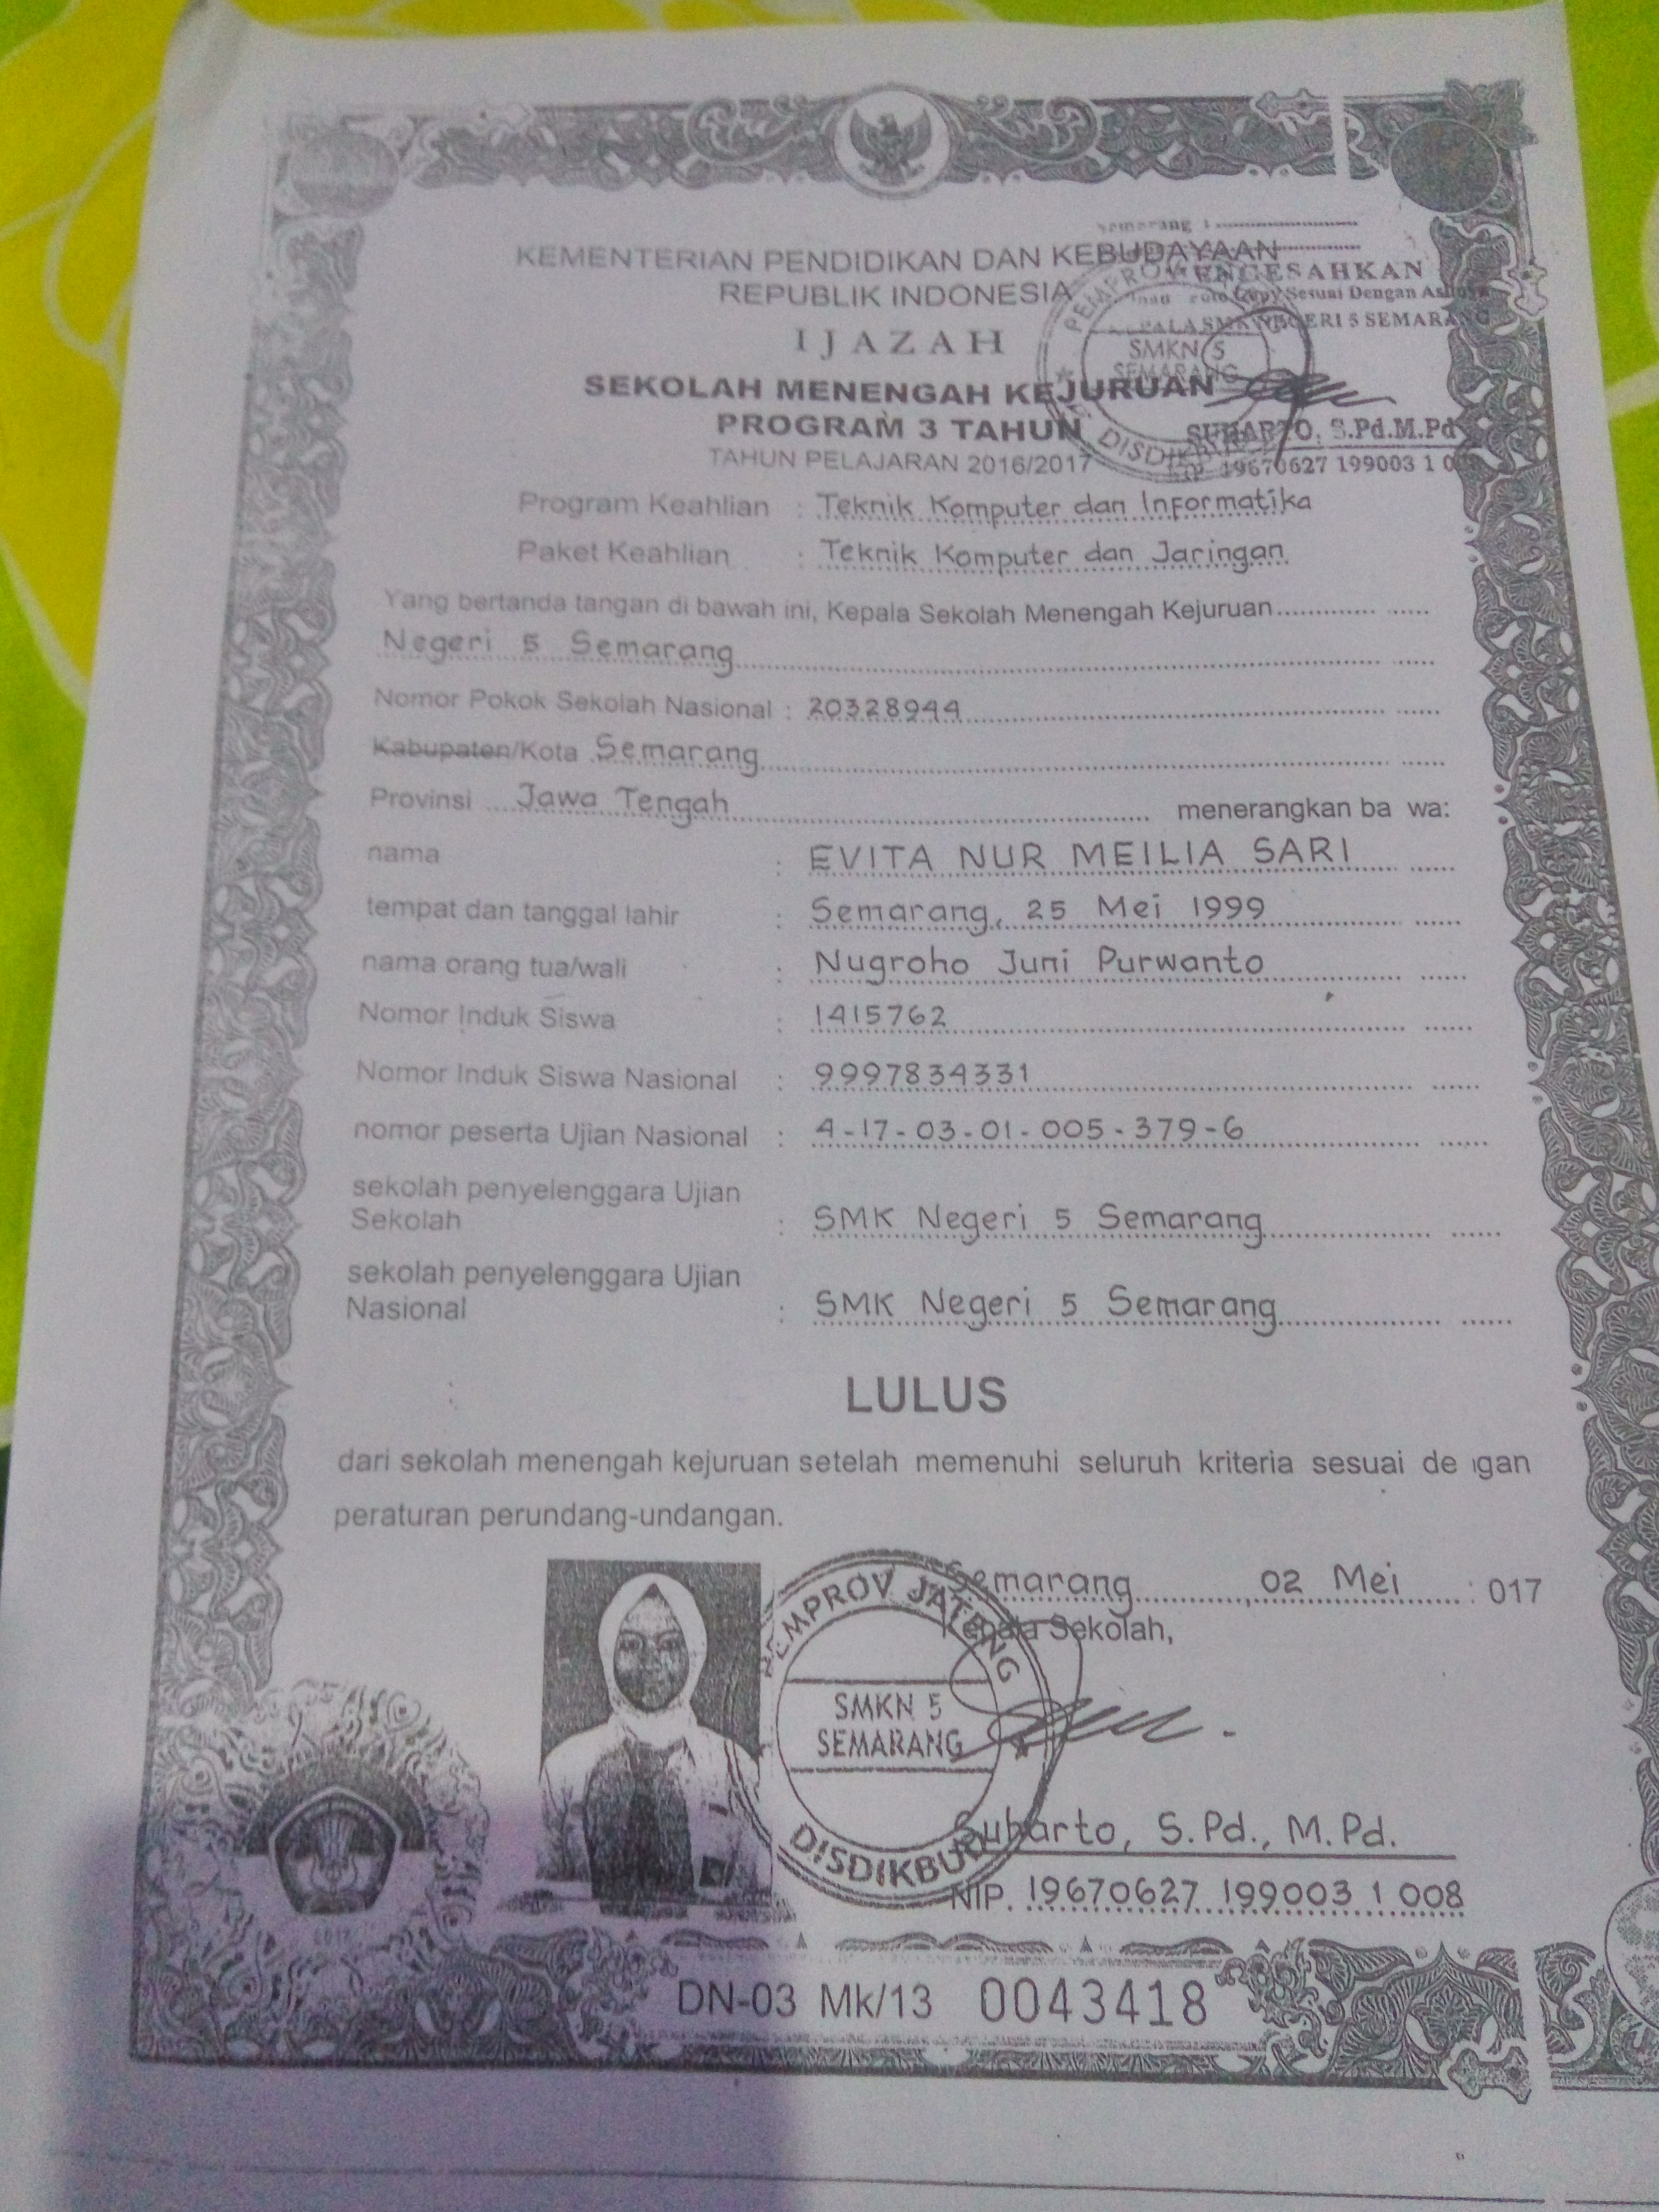 Semarang,
KEMENTERIAN PENDIDIKAN DAN KEBUDAYAAN
REPUBLIK INDONESIA
MENGESAHKAN
Copy Sesuai Dengan
SMK NEGERI 5 SEMARANG
IJAZAH
SMKN 5
SEMARANG
SEKOLAH MENENGAH KEJURUAN
PROGRAM 3 TAHUN
DISDIKBUD
SUHARTO, S.Pd.M.Pd
TAHUN PELAJARAN 2016/2017
19670627 199003 1
Program Keahlian : Teknik Komputer dan Informatika
Paket Keahlian : Teknik Komputer dan Jaringan
Yang bertanda tangan di bawah ini, Kepala Sekolah Menengah Kejuruan
Negeri 5 Semarang
Nomor Pokok Sekolah Nasional : 20328944
Kabupaten/Kota Semarang
Provinsi Jawa Tengah menerangkan ba wa:
nama : EVITA NUR MEILIA SARI
tempat dan tanggal lahir : Semarang, 25 Mei 1999
nama orang tua/wali : Nugroho Juni Purwanto
Nomor Induk Siswa : 1415762
Nomor Induk Siswa Nasional : 9997834331
nomor peserta Ujian Nasional : 4-17-03-01-005-379-6
sekolah penyelenggara Ujian
Sekolah : SMK Negeri 5 Semarang
sekolah penyelenggara Ujian
Nasional : SMK Negeri 5 Semarang
LULUS
dari sekolah menengah kejuruan setelah memenuhi seluruh kriteria sesuai de gan
peraturan perundang-undangan.
Semarang, 02 Mei 017
Kepala Sekolah,
PEMPROV JATENG
SMKN 5
SEMARANG
DISDIKBUD
Suharto, S.Pd., M.Pd.
NIP. 19670627 199003 1 008
DN-03 Mk/13 0043418